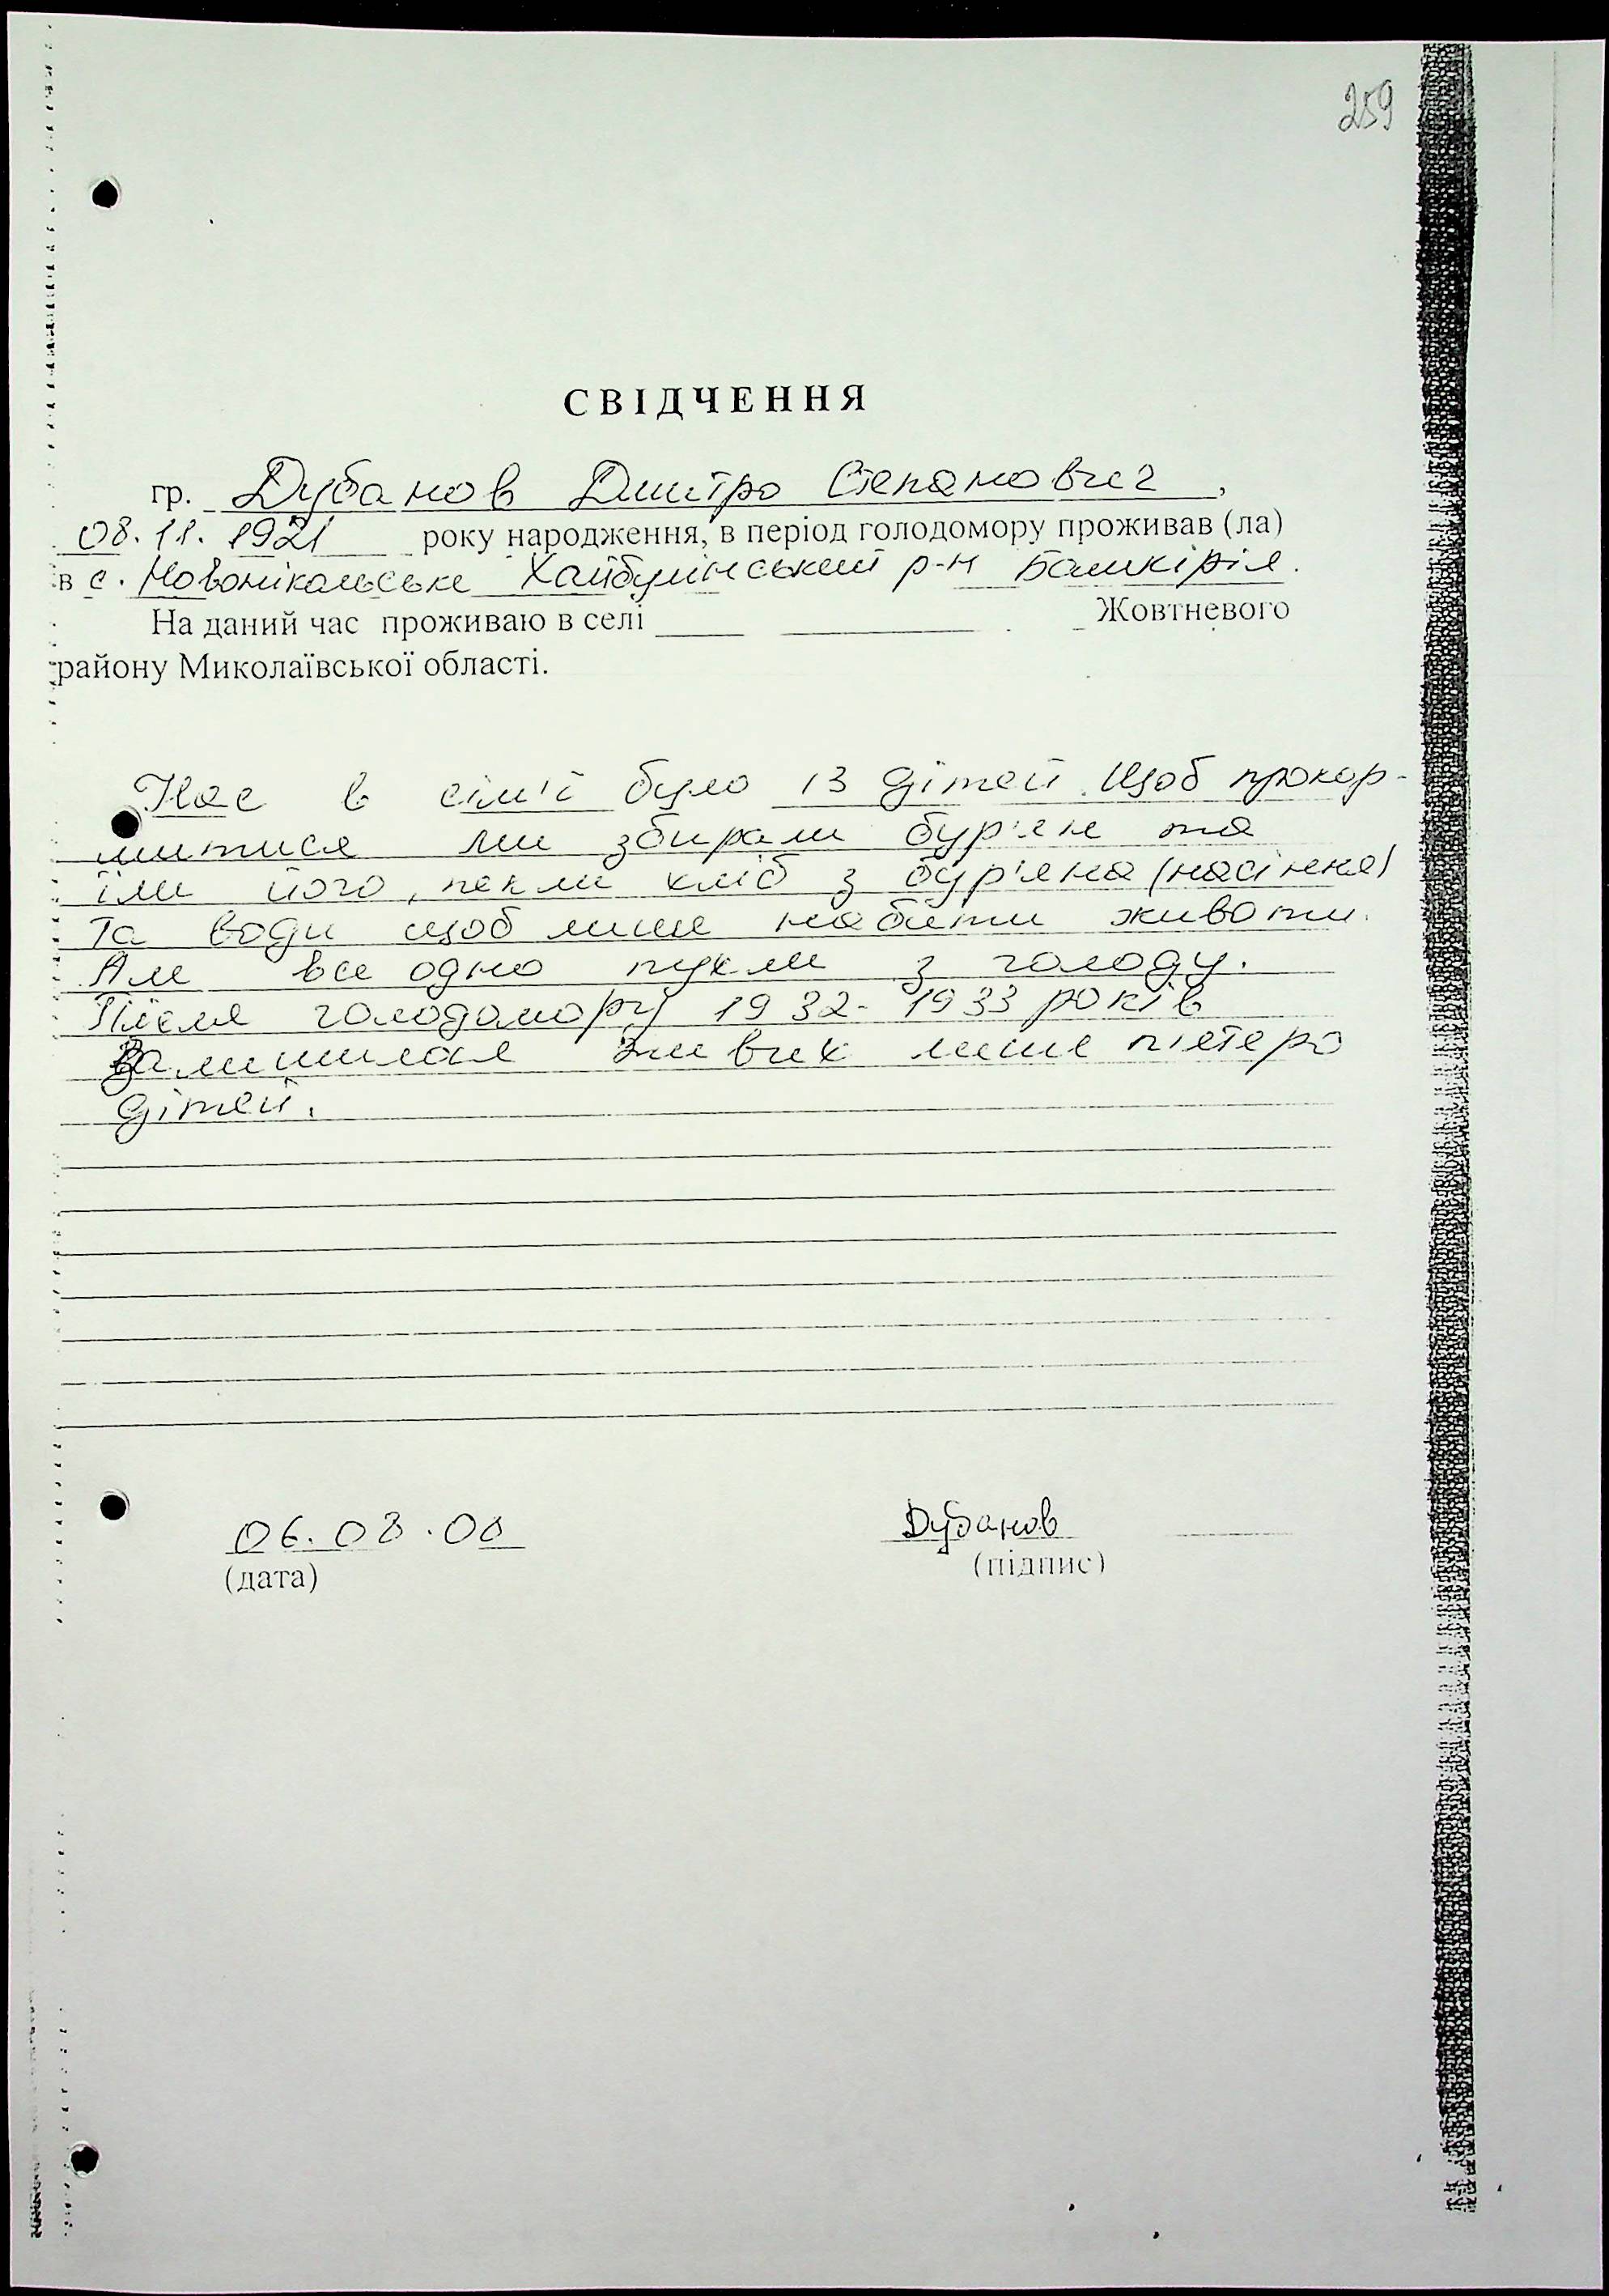 259
СВІДЧЕННЯ
гр. Дубанов Дмитро Степанович,
08.11.1921 року народження, в період голодомору проживав (ла)
в с. Новонікольське Хайбулінський р-н Башкірія.
На даний час проживаю в селі Жовтневого
району Миколаївської області.
Нас в сім'ї було 13 дітей. Щоб прокор-
митися ми збирали бур'ян та
їли його, пекли хліб з бур'яна (насіння)
Та води щоб лише набити животи.
Але все одно пухли з голоду.
Після голодомору 1932-1933 років
Залишилося живих лише п'ятеро
дітей.
06.08.00 Дубанов
(дата) (підпис)